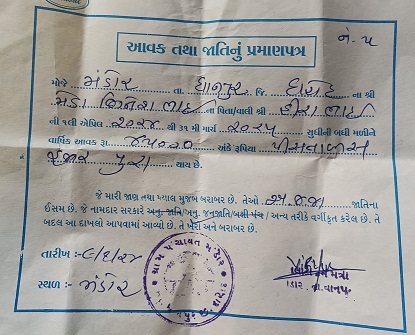 આવક તથા જાતિનું પ્રમાણપત્ર
મોજે મંડોર તા. ધાનપુર જિ. દાહોદ ના શ્રી
મેડા કિનેશભાઇ ના પિતા/વાલી શ્રી હીરાભાઇ
ની ૧લી એપ્રિલ ૨૦૨૪ થી ૩૧ મી માર્ચ ૨૦૨૫ સુધીની બધી મળીને
વાર્ષિક આવક રૂા. ૪૫૦૦૦ અંકે રૂપિયા પીસતાળીસ
હજાર પુરા થાય છે.
જે મારી જાણ તથા ખ્યાલ મુજબ બરાબર છે. તેઓ જાતિના
ઈસમ છે. જે નામદાર સરકારે અનુ. જાતિ/અનુ. જનજાતિ/બક્ષી પંચ / અન્ય તરીકે વર્ગીકૃત કરેલ છે. તે
બદલ આ દાખલો આપવામાં આવ્યો છે. તે ખરો અને બરાબર છે.
તારીખ :-
સ્થળ :- મંડોર